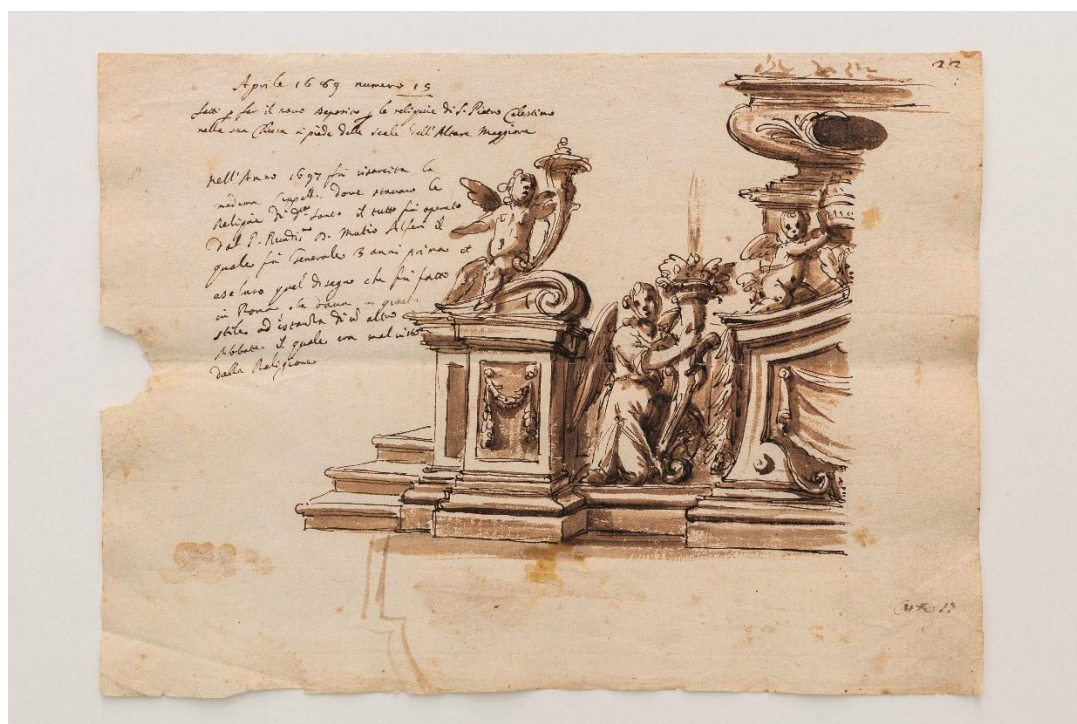 Aprile 1689 numero 15
fatti p far il novo deposito p le reliquie di S. Pietro Celestino
nella sua Chiesa a piede delle scale dell'Altare Maggiore
Nell'Anno 1697 fu la
Cappella dove stavano le
Reliquie di d.to Santo il tutto fu operato
dal P. D. Mutio Alferi il
quale fu Generale 3 anni prima et
escluso quel disegno che fu fatto
in Roma
stile ad istanza di altro
Abbate il quale era mal visto
dalla Religione
22